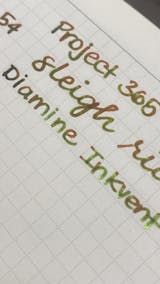 54
Project 365
sleigh
Diamine Inkvent